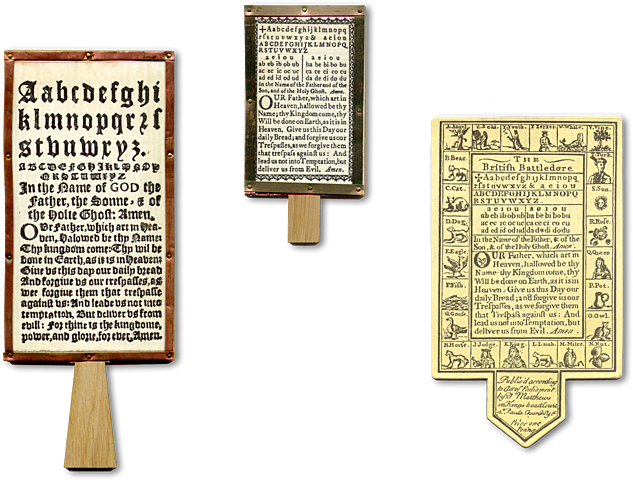 Aabcdefghi
klmnopqrzſ
stvbuwryz.
ABCDEFGHIKLMNOP
QRSTUWXYZ
In the Name of GOD the
Father, the Sonne, & of
the Holie Ghost: Amen.
OUr Father, which art in Hea-
ven, Halowed be thy Name:
Thy kingdom come: Thy wil be
done in Earth, as it is in Heaven:
Giue vs this day our daily bread
And forgive us our trespasses, as
wee forgive them that trespasse
against us: And leade vs not into
temptation, But deliver vs from
evill: For thine is the kingdome,
power, and glorie, for ever, Amen.
✠Aabcdefghijklmnopq
rſstuvwxyz& aeiou
ABCDEFGHIJKLMNOPQ
RSTUVWXYZ
a e i o u a e i o u
ab eb ib ob ub ba be bi bo bu
ac ec ic oc uc ca ce ci co cu
ad ed id od ud da de di do du
In the Name of the Father and of the
Son, and of the Holy Ghost. Amen.
OUR Father, which art in
Heaven, hallowed be thy
Name; thy Kingdom come, thy
Will be done on Earth, as it is in
Heaven. Give us this Day our
daily Bread; and forgive us our
Treſpaſſes, as we forgive them
that treſpaſs againſt us: And
lead us not into Temptation, but
deliver us from Evil. Amen.
B.Bear.
C.Cat.
D.Dog.
E.Eagle.
F.Fish.
G.Gooſe.
H.Horſe. J.Judge. K.King. L.Lamb. M.Mitre. N.Nut.
U.Urn. T.Ving.
S.Sun.
R.Roſe.
Q.Queen
P.Pot.
O.Owl.
THE
Britiſh Battledore
✠Aabcdefghijklmnopq
rſstuvwxyz & aeiou
ABCDEFGHIJKLMNOPQ
RSTUVWXYZ
a e i o u a e i o u
ab eb ib ob ub ba be bi bo bu
ac ec ic oc uc ca ce ci co cu
ad ed id od ud da de di do du
In the Name of the Father, & of the
Son, & of the Holy Ghost. Amen.
OUR Father, which art in
Heaven, hallowed be thy
Name thy Kingdom come, thy
Will be done on Earth, as it is in
Heaven. Give us this Day our
daily Bread; and forgive us our
Treſpaſſes, as we forgive them
that Treſpaſs againſt us: And
lead us not into Temptation, but
deliver us from Evil. AMEN.
Publis'd according
to Act of Parliament.
by J Matthews
in Kings head Court
St. Pauls Church Yd.
Price one
Penny